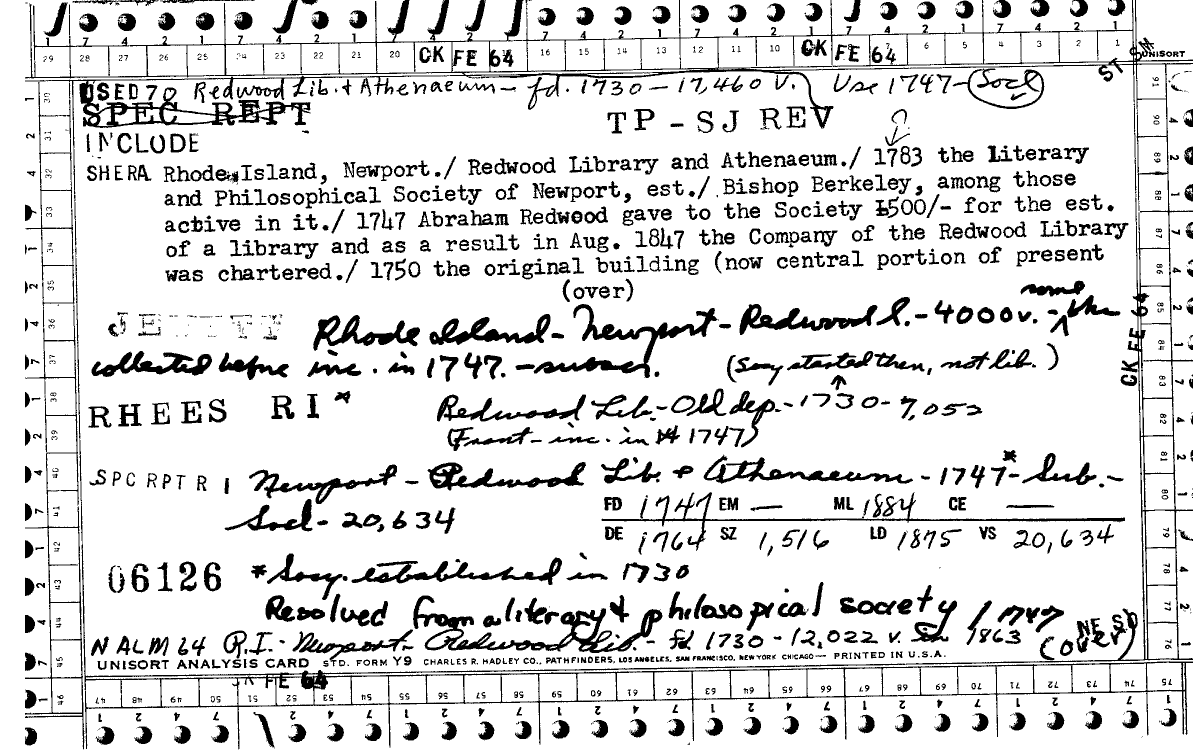 7 4 2 1 7 4 2 1 7 4 2 1 7 4 2 1 7 4 2 1 7 4 2 1 7 4 2 1
29 28 27 26 25 24 23 22 21 20 CK FE 64 16 15 14 13 12 11 10 CK FE 64 6 5 4 3 2 1 UNISORT
ST SM
USED 70 Redwood Lib. & Athenaeum - fd. 1730 - 17,460 V. Use 1747 - Socl
SPEC REPT
TP - SJ REV ?
INCLUDE
SHERA Rhode Island, Newport./ Redwood Library and Athenaeum./ 1783 the literary
and Philosophical Society of Newport, est./ Bishop Berkeley, among those
active in it./ 1747 Abraham Redwood gave to the Society L500/- for the est.
of a library and as a result in Aug. 1847 the Company of the Redwood Library
was chartered./ 1750 the original building (now central portion of present
(over)
JEWETT Rhode Island - Newport - Redwood l. - 4000 v. - some
collected before inc. in 1747. - subscr. (Socy started then, not lib.)
RHEES RI* Redwood Lib. - Old dep. - 1730 - 7,052
(Front - inc. in 1747)
SPC RPT R I Newport - Redwood Lib. & Athenaeum - 1747* - Sub. -
Socl - 20,634
FD 1747 EM — ML 1884 CE —
DE 1764 SZ 1,516 LD 1875 VS 20,634
06126 *Socy. established in 1730
Resolved from a literary & philosopical society / 1747
N ALM 64 R.I. - Newport - Redwood Lib. - fd 1730 - 12,022 v. in 1863 (over)
NE SD
UNISORT ANALYSIS CARD STD. FORM Y9 CHARLES R. HADLEY CO., PATHFINDERS, LOS ANGELES, SAN FRANCISCO, NEW YORK CHICAGO — PRINTED IN U.S.A.
FE 64
CK FE 64
47 48 49 50 51 52 53 54 55 56 57 58 59 60 61 62 63 64 65 66 67 68 69 70 71 72 73 74 75